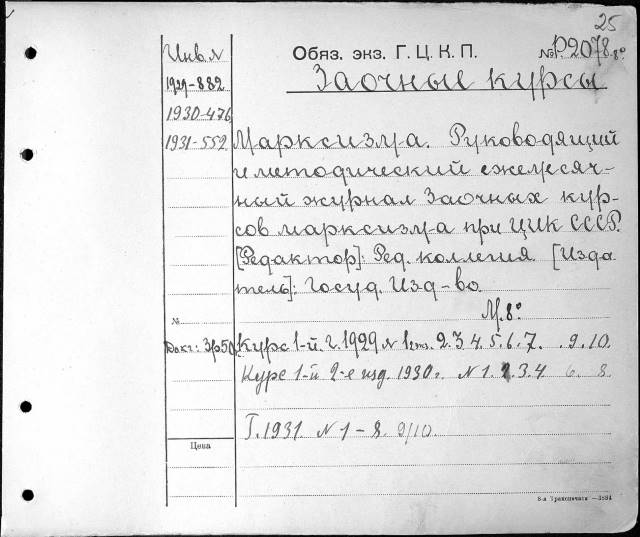 25
Инв. №
Обяз. экз. Г. Ц. К. П.
№ Р2078. 8°
Заочные курсы
1929-882
1930-476
1931-552
Марксизма. Руководящий
и методический ежемесяч-
ный журнал Заочных кур-
сов марксизма при ЦИК СССР.
[Редактор]: Ред. коллегия. [Изда
тель]: Госуд. Изд-во.
М. 8°
№
3р50
Курс 1-й. г. 1929 № 1 2. 3 4. 5. 6. 7. . 9. 10.
Курс 1-й 2-е изд. 1930 г. № 1. 2. 3. 4 6. 8.
Г. 1931. № 1 - 8. 9/10.
Цена
8-я Транспечать —3884